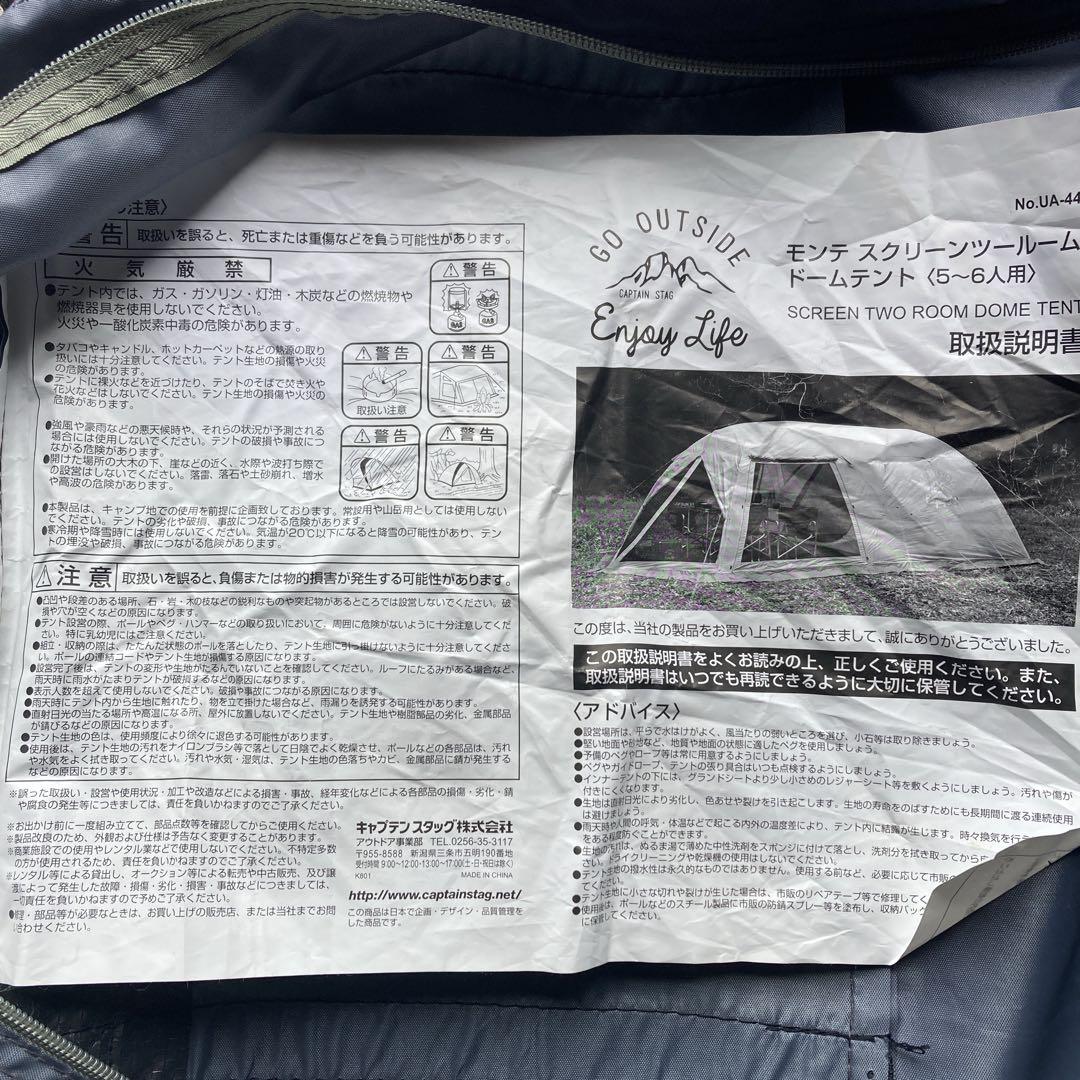 の注意〉
警告 取扱いを誤ると、死亡または重傷などを負う可能性があります。
火気厳禁
●テント内では、ガス・ガソリン・灯油・木炭などの燃焼物や
燃焼器具を使用しないでください。
火災や一酸化炭素中毒の危険があります。
⚠警告
●タバコやキャンドル、ホットカーペットなどの熱源の取り
扱いには十分注意してください。テント生地の損傷や火災
の危険があります。
●テントに裸火などを近づけたり、テントのそばで焚き火や
花火などはしないでください。テント生地の損傷や火災の
危険があります。
⚠警告
取扱い注意
⚠警告
●強風や豪雨などの悪天候時や、それらの状況が予測される
場合には使用しないでください。テントの破損や事故につ
ながる危険があります。
●開けた場所の大木の下、崖などの近く、水際や波打ち際で
の設営はしないでください。落雷、落石や土砂崩れ、増水
や高波の危険があります。
⚠警告
⚠警告
●本製品は、キャンプ地での使用を前提に企画致しております。常設用や山岳用としては使用しない
でください。テントの劣化や破損、事故につながる危険があります。
●寒冷期や降雪時には使用しないでください。気温が20℃以下になると降雪の可能性があり、テン
トの埋没や破損、事故につながる危険があります。
⚠注意 取扱いを誤ると、負傷または物的損害が発生する可能性があります。
●凸凹や段差のある場所、石・岩・木の枝などの鋭利なものや突起物があるところでは設営しないでください。破
損や穴が空くなどの原因になります。
●テント設営の際、ポールやペグ・ハンマーなどの取り扱いにおいて、周囲に危険がないように十分注意してくだ
さい。特に乳幼児にはご注意ください。
●組立・収納の際は、たたんだ状態のポールを落としたり、テント生地に引っ掛けないように十分注意してくださ
い。ポールの連結コードやテント生地が損傷する原因になります。
●設営完了後は、テントの変形や生地がたるんでいないことを確認してください。ルーフにたるみがある場合など、
雨天時に雨水がたまりテントが破損するなどの原因になります。
●表示人数を超えて使用しないでください。破損や事故につながる原因になります。
●雨天時にテント内から生地に触れたり、物を立て掛けた場合など、雨漏りを誘発する可能性があります。
●直射日光の当たる場所や高温になる所、屋外に放置しないでください。テント生地や樹脂部品の劣化、金属部品
が錆びるなどの原因になります。
●テント生地の色は、使用頻度により徐々に退色する可能性があります。
●使用後は、テント生地の汚れをナイロンブラシ等で落として日陰でよく乾燥させ、ポールなどの各部品は、汚れ
や水気をよく拭き取ってください。汚れや水気・湿気は、テント生地の色落ちやカビ、金属部品に錆が発生する
などの原因になります。
※誤った取扱い・設営や使用状況・加工や改造などによる損害・事故、経年変化などによる各部品の損傷・劣化・錆
や腐食の発生等につきましては、責任を負いかねますのでご了承ください。
※お出かけ前に一度組み立てて、部品点数等を確認してからご使用ください。
※製品改良のため、外観および仕様は予告なく変更することがあります。
※商業施設での使用やレンタル業などで使用しないでください。不特定多数
の方が使用されるため、責任を負いかねますのでご了承ください。
※レンタル等による貸出し、オークション等による転売や中古販売、及び譲
渡によって発生した故障・損傷・劣化・損害・事故などにつきましては、
一切責任を負いかねますので予めご了承ください。
・部品等が必要なときは、お買い上げの販売店、または当社までお問
い合わせください。
キャプテンスタッグ株式会社
アウトドア事業部 TEL.0256-35-3117
〒955-8588 新潟県三条市五明190番地
受付時間 9:00~12:00・13:00~17:00(土・日・祝日は除く)
K801 MADE IN CHINA
http://www.captainstag.net/
この商品は日本で企画・デザイン・品質管理を
した商品です。
GO OUTSIDE
CAPTAIN STAG
Enjoy Life
No.UA-44
モンテ スクリーンツールーム
ドームテント〈5~6人用〉
SCREEN TWO ROOM DOME TENT
取扱説明書
この度は、当社の製品をお買い上げいただきまして、誠にありがとうございました。
この取扱説明書をよくお読みの上、正しくご使用ください。また、
取扱説明書はいつでも再読できるように大切に保管してください。
〈アドバイス〉
●設営場所は、平らで水はけがよく、風当たりの弱いところを選び、小石等は取り除きましょう。
●堅い地面や砂地など、地質や地面の状態に適したペグを使用しましょう。
●予備のペグやロープ等は常に用意するようにしましょう。
●ペグやガイドロープ、テントの張り具合はいつも点検するようにしましょう。
●インナーテントの下には、グランドシートより少し小さめのレジャーシート等を敷くようにしましょう。汚れや傷が
付きにくくなります。
●生地は直射日光により劣化し、色あせや裂けを引き起こします。生地の寿命をのばすためにも長期間に渡る連続使用
は避けましょう。
●雨天時や人間の呼気・体温などで起こる内外の温度差により、テント内に結露が生じます。時々換気を行う
ある程度防ぐことができます。
●生地の汚れは、ぬるま湯で薄めた中性洗剤をスポンジに付けて落とし、洗剤分を拭き取ってから
さい。ドライクリーニングや乾燥機の使用はしないでください。
●テント生地の撥水性は永久的なものではありません。使用する前など、必要に応じて市販
●テント生地に小さな切れや裂けが生じた場合は、市販のリペアテープ等で修理してく
●使用後は、ポールなどのスチール製品に市販の防錆スプレー等を塗布し、収納バッグ
に保管してください。